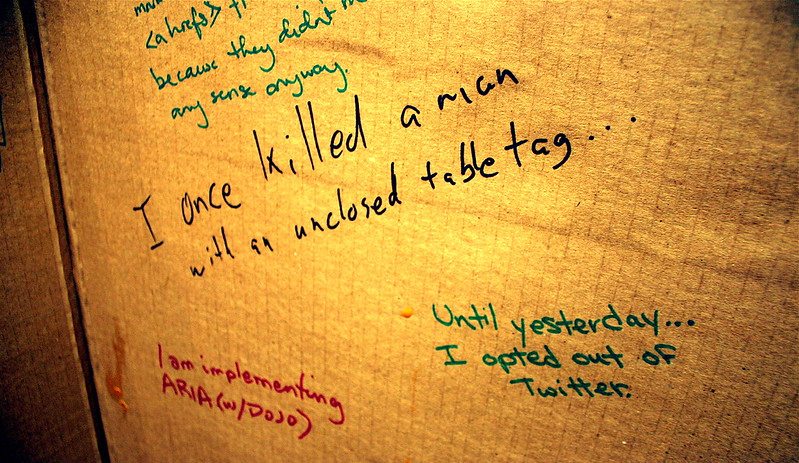 <ahrefs>
because they didn't
any sense anyway.
I once killed a man
with an unclosed table tag...
Until yesterday...
I opted out of
Twitter.
I am implementing
ARIA (w/DOJO)